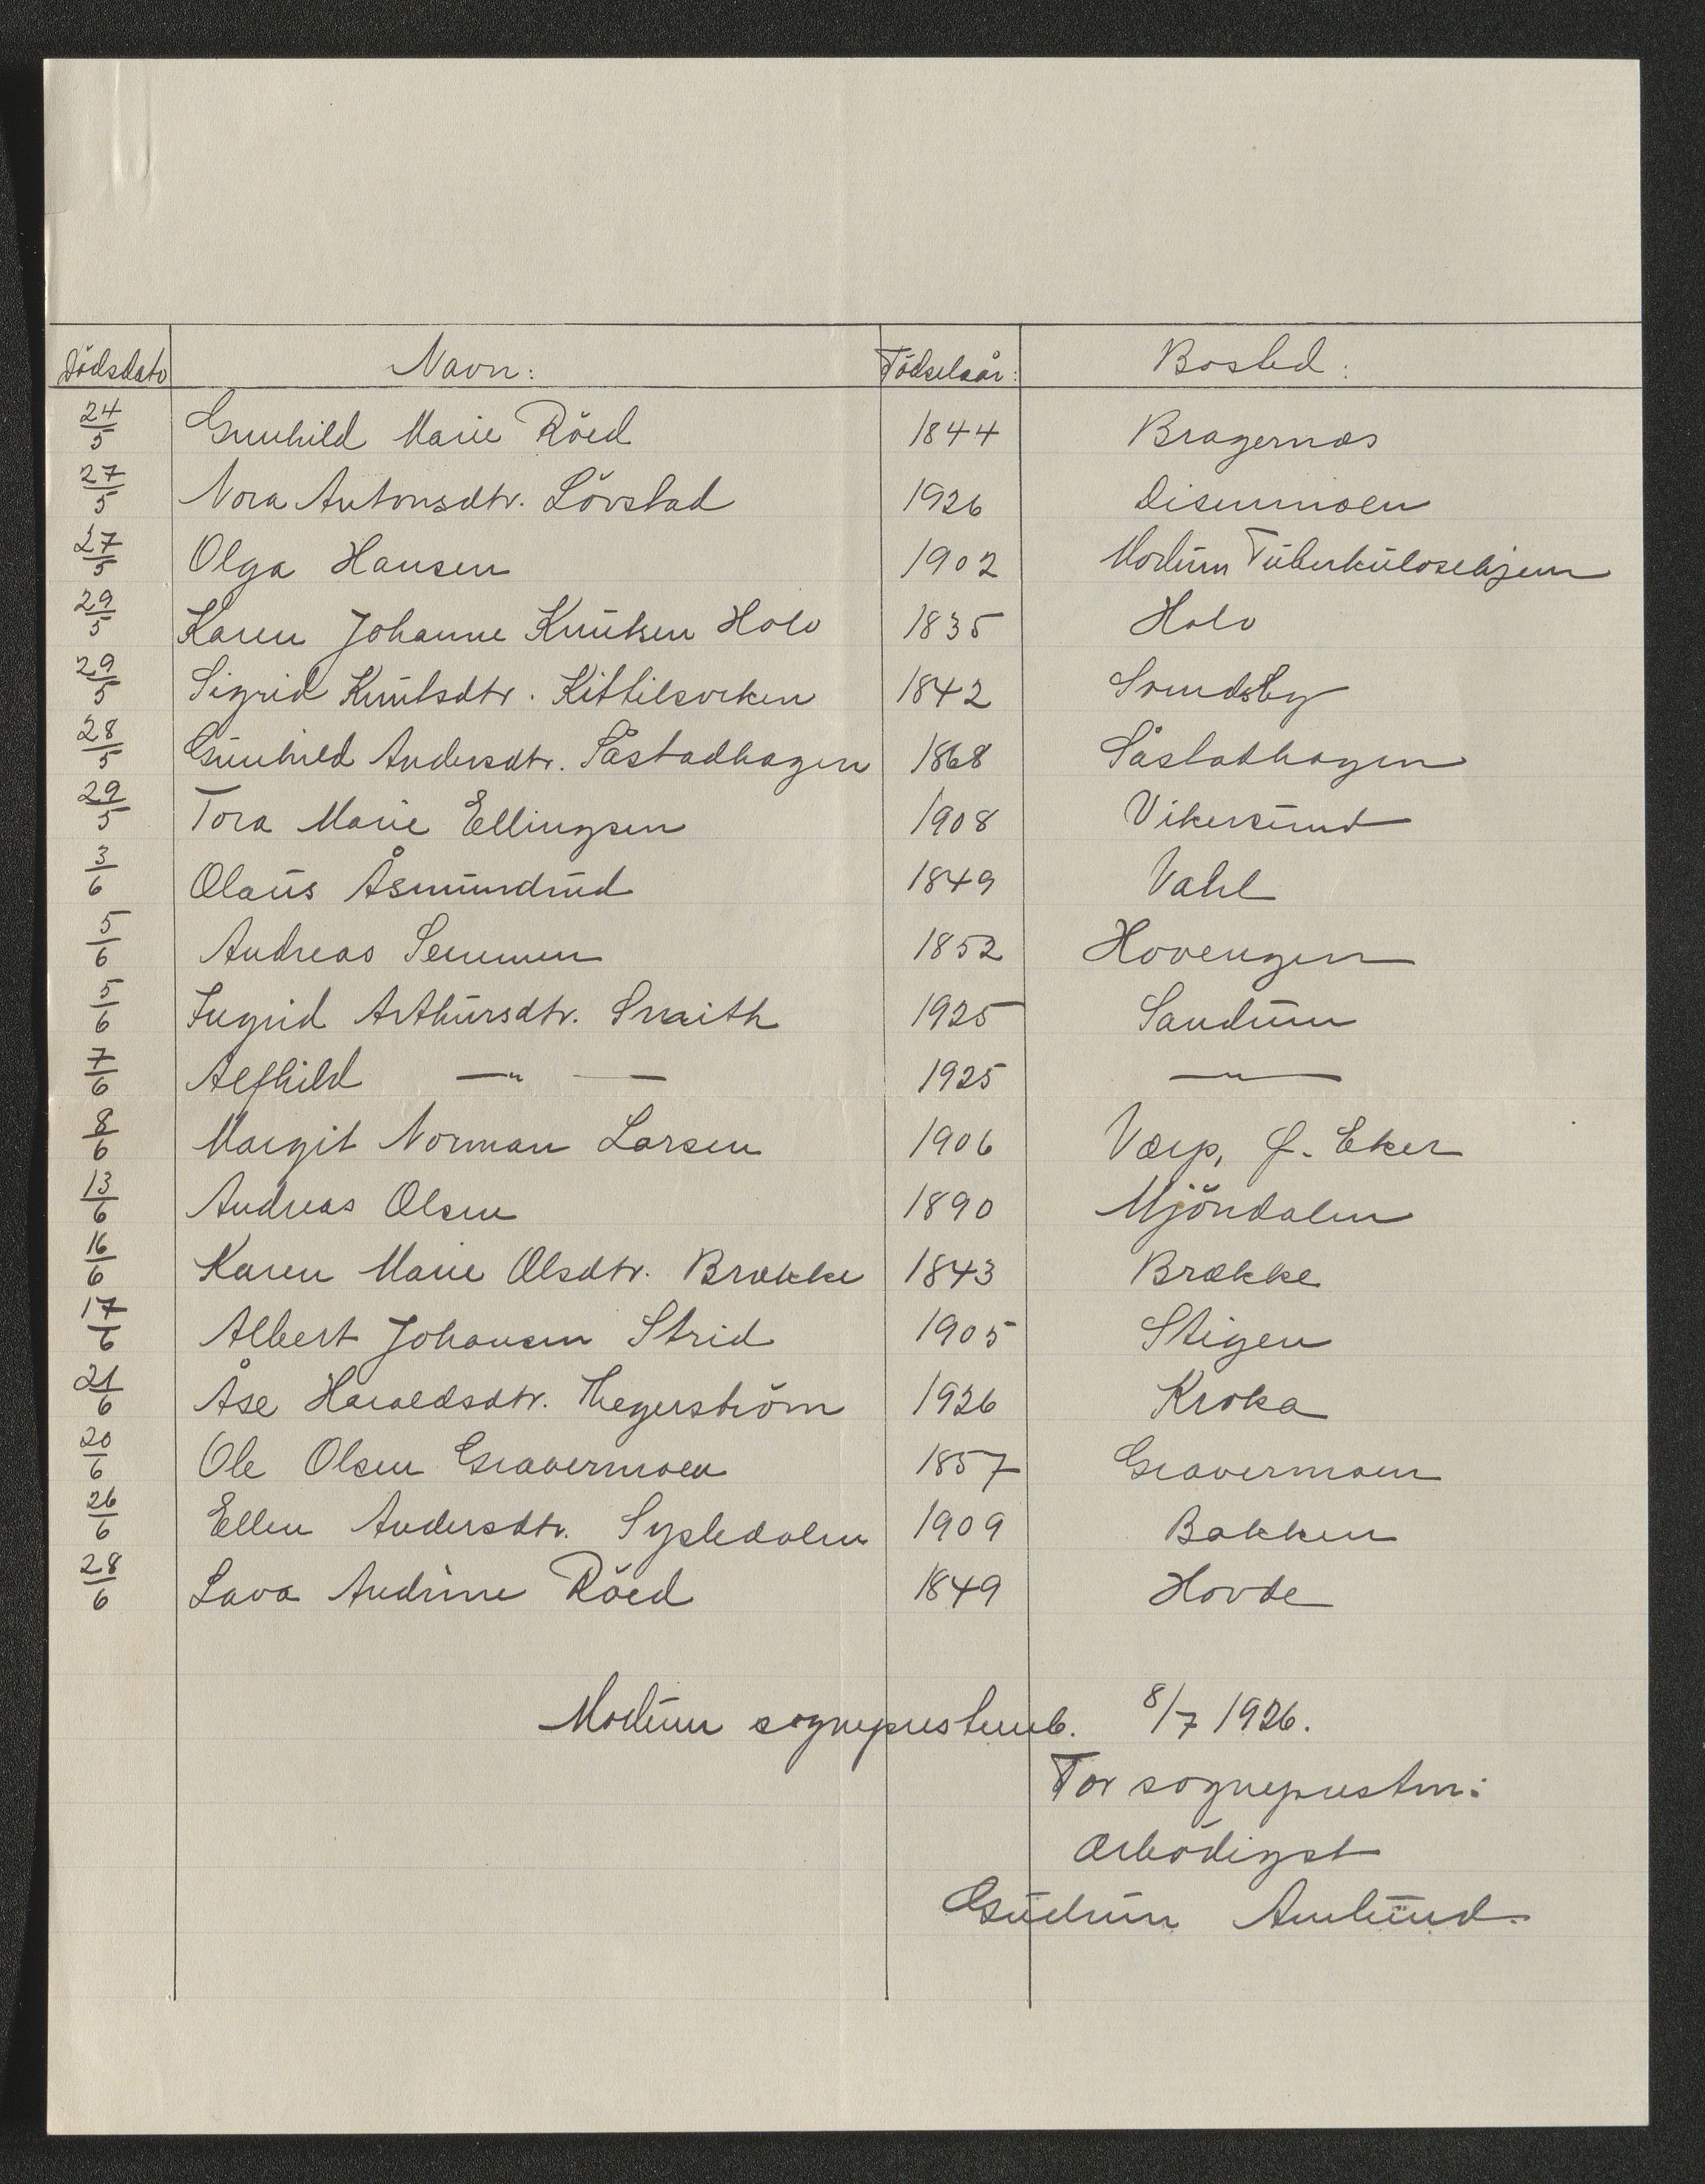 Dödsdato Navn: Födselsår: Bosted:
24/5 Gunhild Marie Röed 1844 Bragernæs
27/5 Nora Antonsdtr. Lövstad 1926 Disenmoen
27/5 Olga Hansen 1902 Modum Tuberkulosehjem
29/5 Karen Johanne Knutsen Holo 1835 Holo
29/5 Sigrid Knutsdtr. Kittilsviken 1842 Sundsby
28/5 Gunhild Andersdtr. Såstadhagen 1868 Såstadhagen
29/5 Tora Marie Ellingsen 1908 Vikersund
3/6 Olaus Åsmundrud 1849 Vahl
5/6 Andreas Semmen 1852 Hovengen
5/6 Ingrid Arthursdtr. Smith 1925 Sandum
7/6 Alfhild —"— 1925 —"—
8/6 Margit Norman Larsen 1906 Værp, Ø. Eker
13/6 Andreas Olsen 1890 Mjöndalen
16/6 Karen Marie Olsdtr. Brække 1843 Brække
17/6 Albert Johansen Strid 1905 Stigen
21/6 Åse Haraldsdtr. Thegerström 1926 Kroka
20/6 Ole Olsen Gravermoen 1857 Gravermoen
26/6 Ellen Andersdtr. Sysledalen 1909 Bakken
28/6 Lava Andrine Röed 1849 Hovde
Modum sogneprestemb. 8/7 1926.
For sognepresten:
Ærbödigst
Gudrun Amlund.